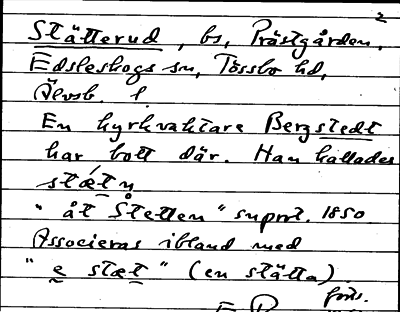 2
Stätterud, bs, Prästgården,
Edsleskogs sn, Tössbo hd,
Älvsb. l.
En kyrkvaktare Bergstedt
har bott där. Han kallades
stætn
"åt Stetten" suprt. 1850
Associeras ibland med
"e stæt" (en stätta)
forts.